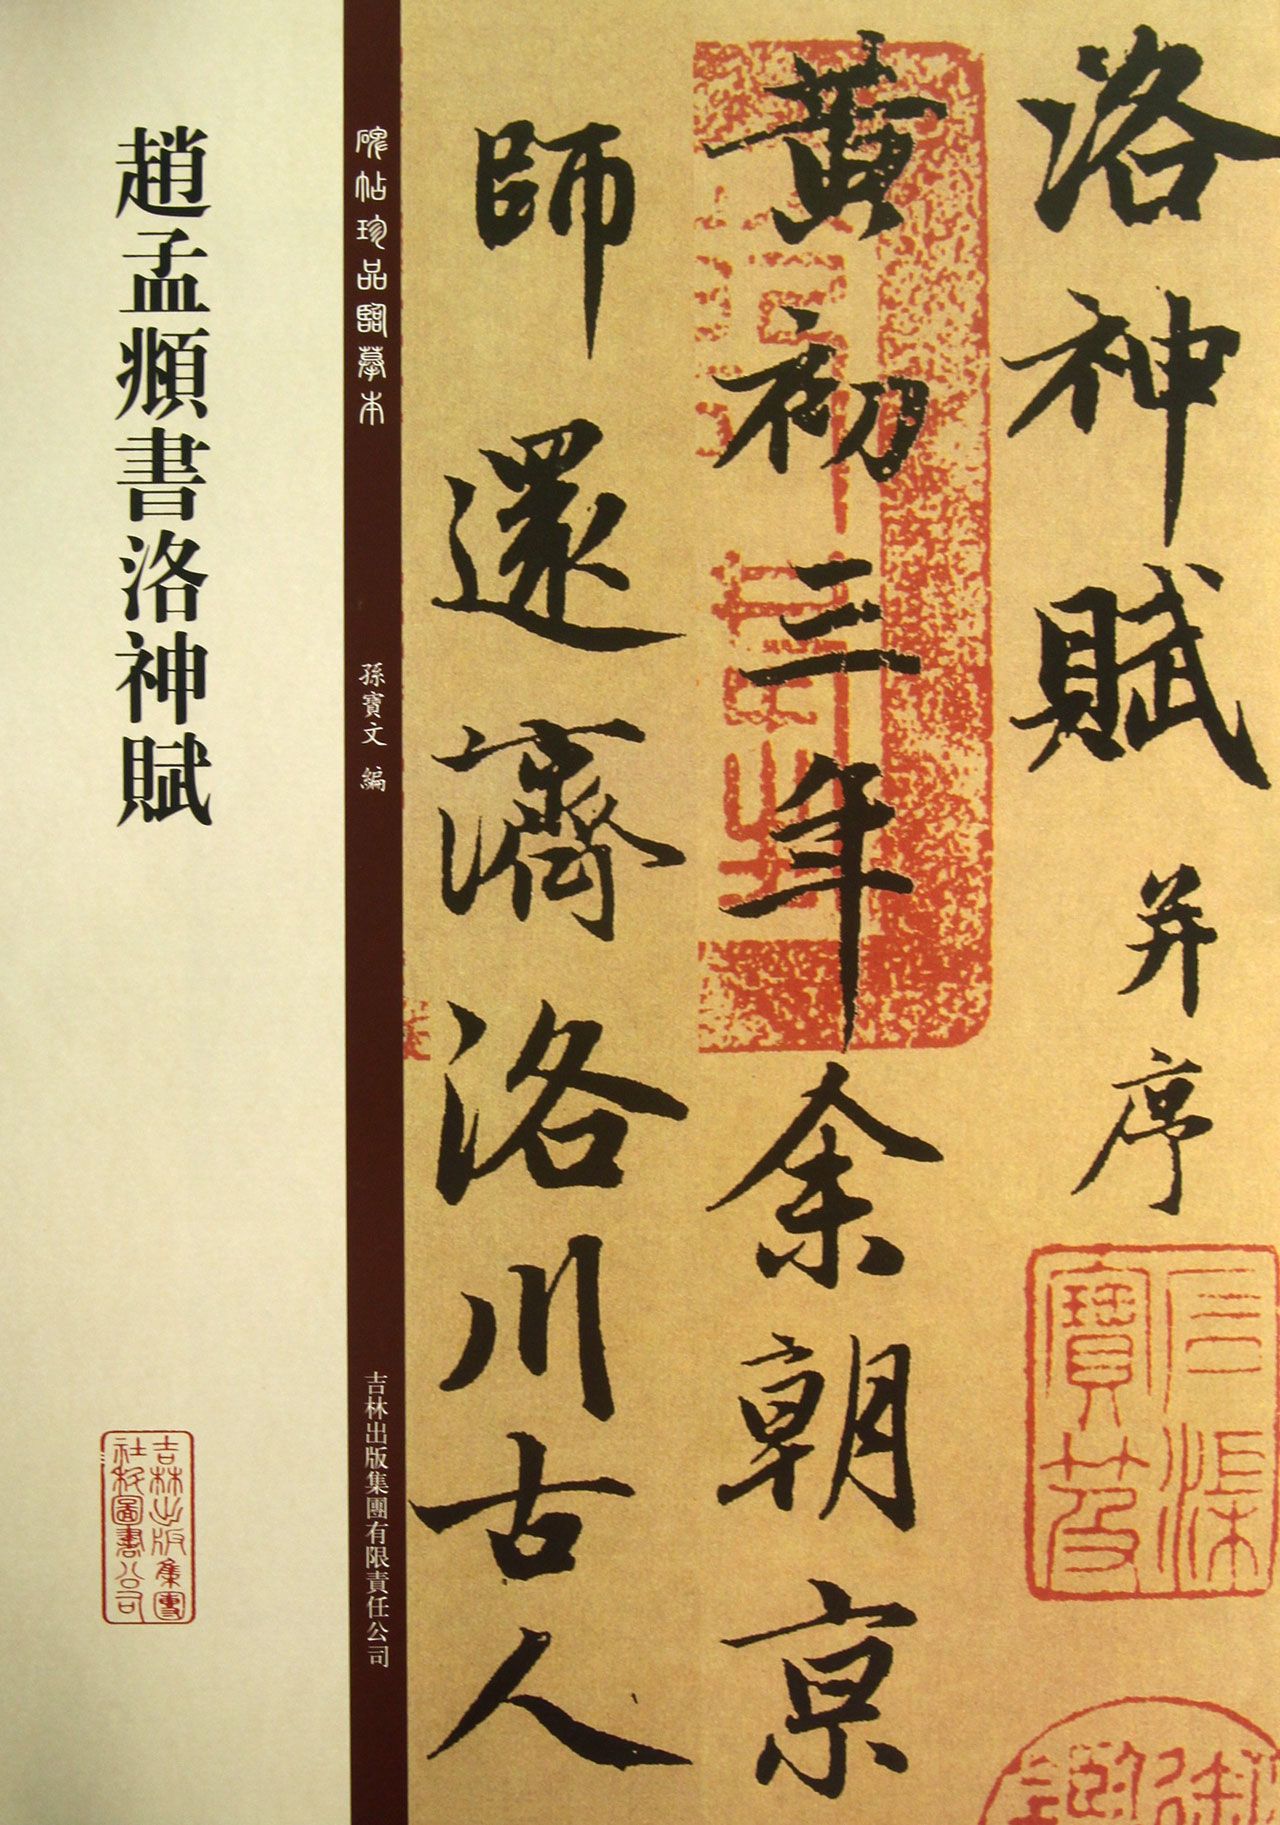 洛神賦 并序
石渠
寶笈
黄初三年余朝京
師還濟洛川古人
碑帖珍品臨摹本 孫寶文 編 吉林出版集團有限責任公司
趙孟頫書洛神賦
吉林出版集團
社科圖書公司